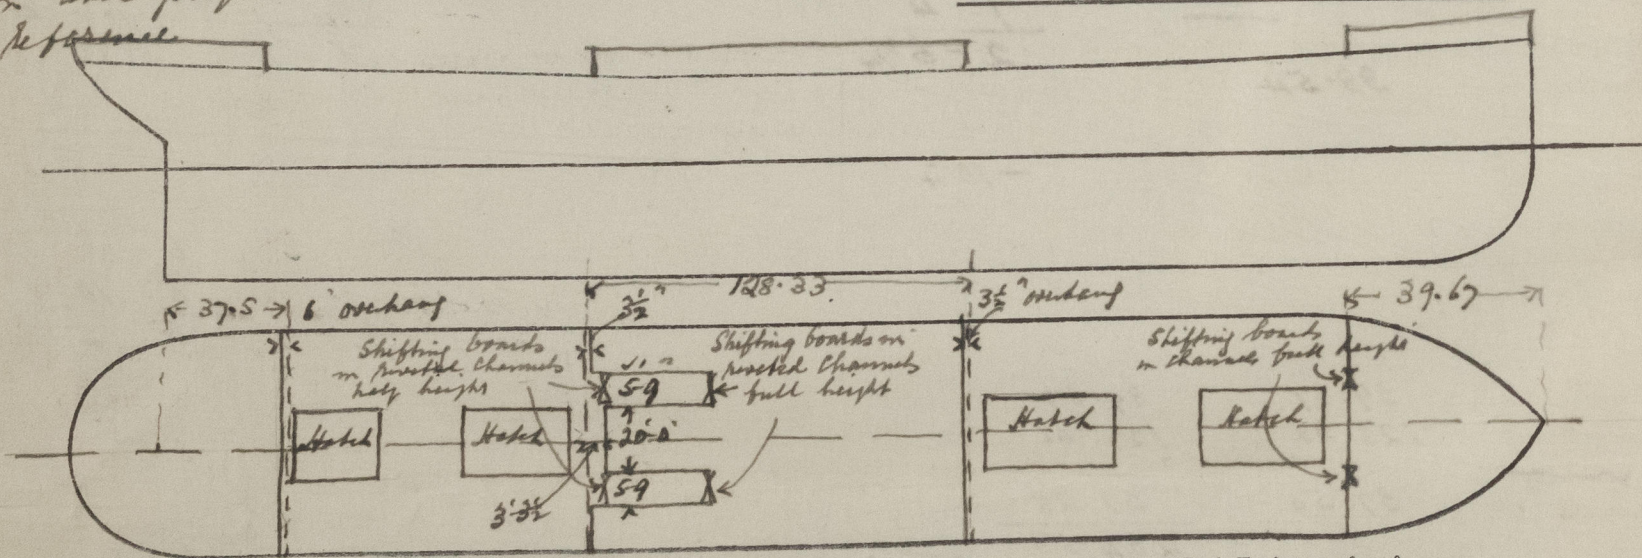 Reference
37.5
6" overhang
3½"
128.33
3½" overhang
39.67
Shifting boards
in riveted channels
half height
Shifting boards in
riveted channels
full height
Shifting boards
in channels full height
5'-9"
20'-0"
5-9
3'-3½
Hatch
Hatch
Hatch
Hatch